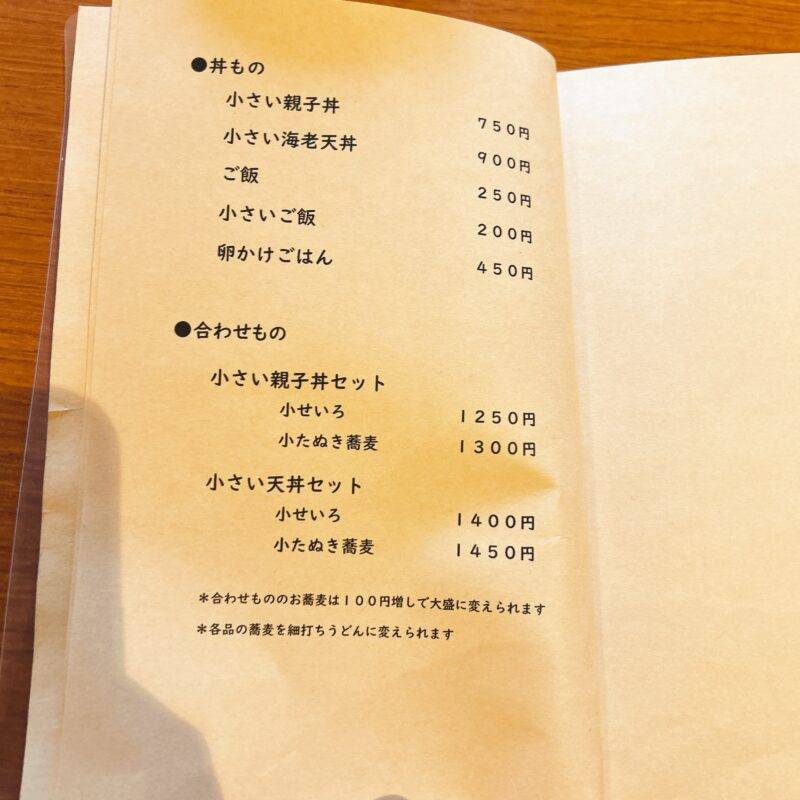 ●丼もの
小さい親子丼 750円
小さい海老天丼 900円
ご飯 250円
小さいご飯 200円
卵かけごはん 450円
●合わせもの
小さい親子丼セット
小せいろ 1250円
小たぬき蕎麦 1300円
小さい天丼セット
小せいろ 1400円
小たぬき蕎麦 1450円
＊合わせもののお蕎麦は100円増しで大盛に変えられます
＊各品の蕎麦を細打ちうどんに変えられます